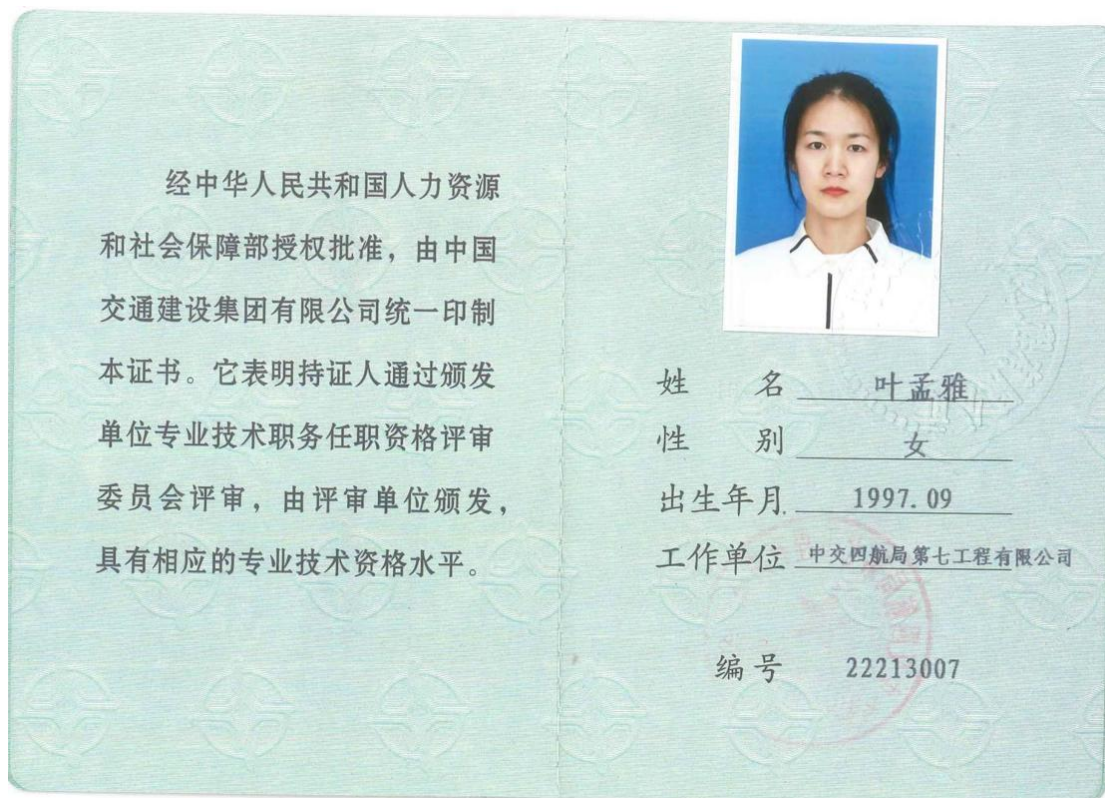 经中华人民共和国人力资源
和社会保障部授权批准，由中国
交通建设集团有限公司统一印制
本证书。它表明持证人通过颁发
单位专业技术职务任职资格评审
委员会评审，由评审单位颁发，
具有相应的专业技术资格水平。
姓 名 叶孟雅
性 别 女
出生年月 1997.09
工作单位 中交四航局第七工程有限公司
编号 22213007